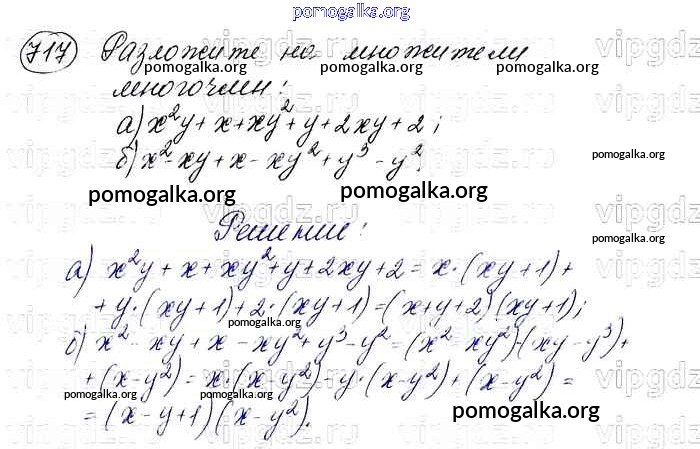 pomogalka.org
717 Разложите на множители
pomogalka.org pomogalka.org pomogalka.org
многочлен:
а) x²y + x + xy² + y + 2xy + 2;
б) x² - xy + x - xy² + y³ - y².
pomogalka.org
pomogalka.org pomogalka.org
Решение:
pomogalka.org
а) x²y + x + xy² + y + 2xy + 2 = x·(xy+1) +
+ y·(xy+1) + 2·(xy+1) = (x+y+2)(xy+1);
pomogalka.org
б) x² - xy + x - xy² + y³ - y² = (x² - xy²) - (xy - y³) +
+ (x - y²) = x·(x - y²) - y·(x - y²) + (x - y²) =
pomogalka.org
= (x - y + 1)(x - y²).
pomogalka.org
vipgdz.ru